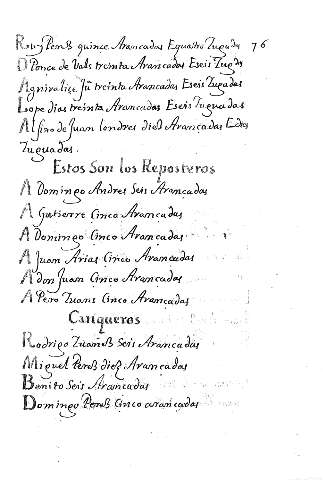 Ruy Perez quince Arancadas Equatro Zugadas 76
D Ponce de Vals treinta Arancadas Eseis Zugds
A treinta Arancadas Eseis Zugadas
Lope dias treinta Arancadas Eseis Zuguadas
Alfino de Juan londres diez Arancadas Edos
Zuguadas.
Estos Son los Reposteros
A Domingo Andres Seis Arancadas
A Gutierre Cinco Arancadas
A Domingo Cinco Arancadas
A Juan Arias Cinco Arancadas
A don Juan Cinco Arancadas
A Pero Zuans Cinco Arancadas
Canqueros
Rodrigo Zuanez Seis Arancadas
Miguel Perez diez Arancadas
Benito Seis Arancadas
Domingo Perez Cinco arancadas